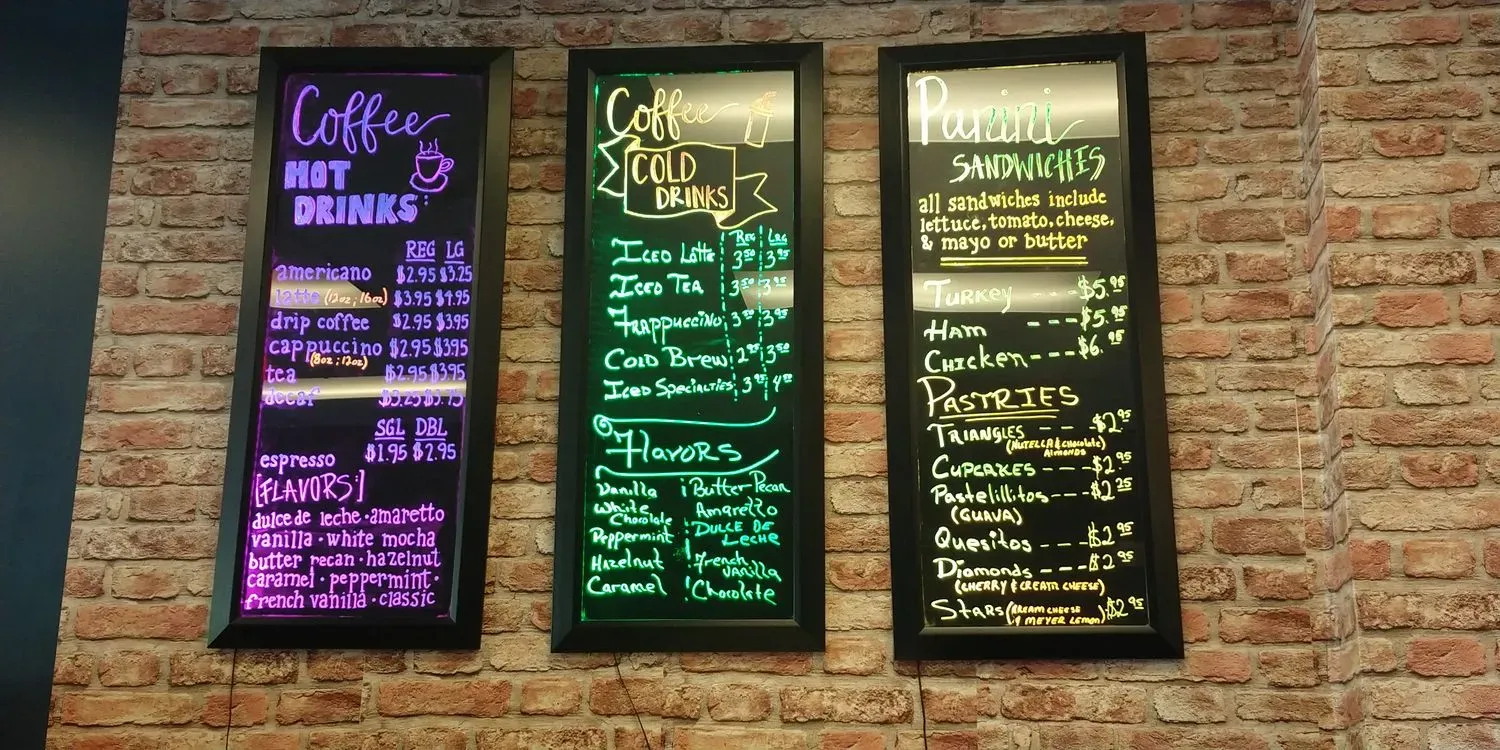 Coffee
HOT
DRINKS
REG LG
americano $2.95 $3.25
latte (12oz; 16oz) $3.95 $4.95
drip coffee $2.95 $3.95
cappuccino $2.95 $3.95
(8oz; 12oz)
tea $2.95 $3.95
decaf $3.25 $3.75
SGL DBL
espresso $1.95 $2.95
[FLAVORS]
dulce de leche · amaretto
vanilla · white mocha
butter pecan · hazelnut
caramel · peppermint ·
french vanilla · classic
Coffee
COLD
DRINKS
REG LRG
ICED LATTE 3.50 3.95
ICED TEA 3.50 3.95
FRAPPUCCINO 3.50 3.95
COLD BREW 2.95 3.50
ICED SPECIALTIES 3.95 4.50
FLAVORS
Vanilla Butter Pecan
White Chocolate Amaretto
Peppermint DULCE DE LECHE
Hazelnut French Vanilla
Caramel Chocolate
Panini
SANDWICHES
all sandwiches include
lettuce, tomato, cheese,
& mayo or butter
TURKEY - - - $5.95
HAM - - - $5.95
CHICKEN - - - $6.95
PASTRIES
TRIANGLES - - - $2.95
(NUTELLA & chocolate
Almonds)
CUPCAKES - - - $2.95
Pastelillitos - - - $2.25
(GUAVA)
Quesitos - - - $2.95
Diamonds - - - $2.95
(CHERRY & CREAM CHEESE)
Stars (CREAM CHEESE $2.95
& MEYER LEMON)